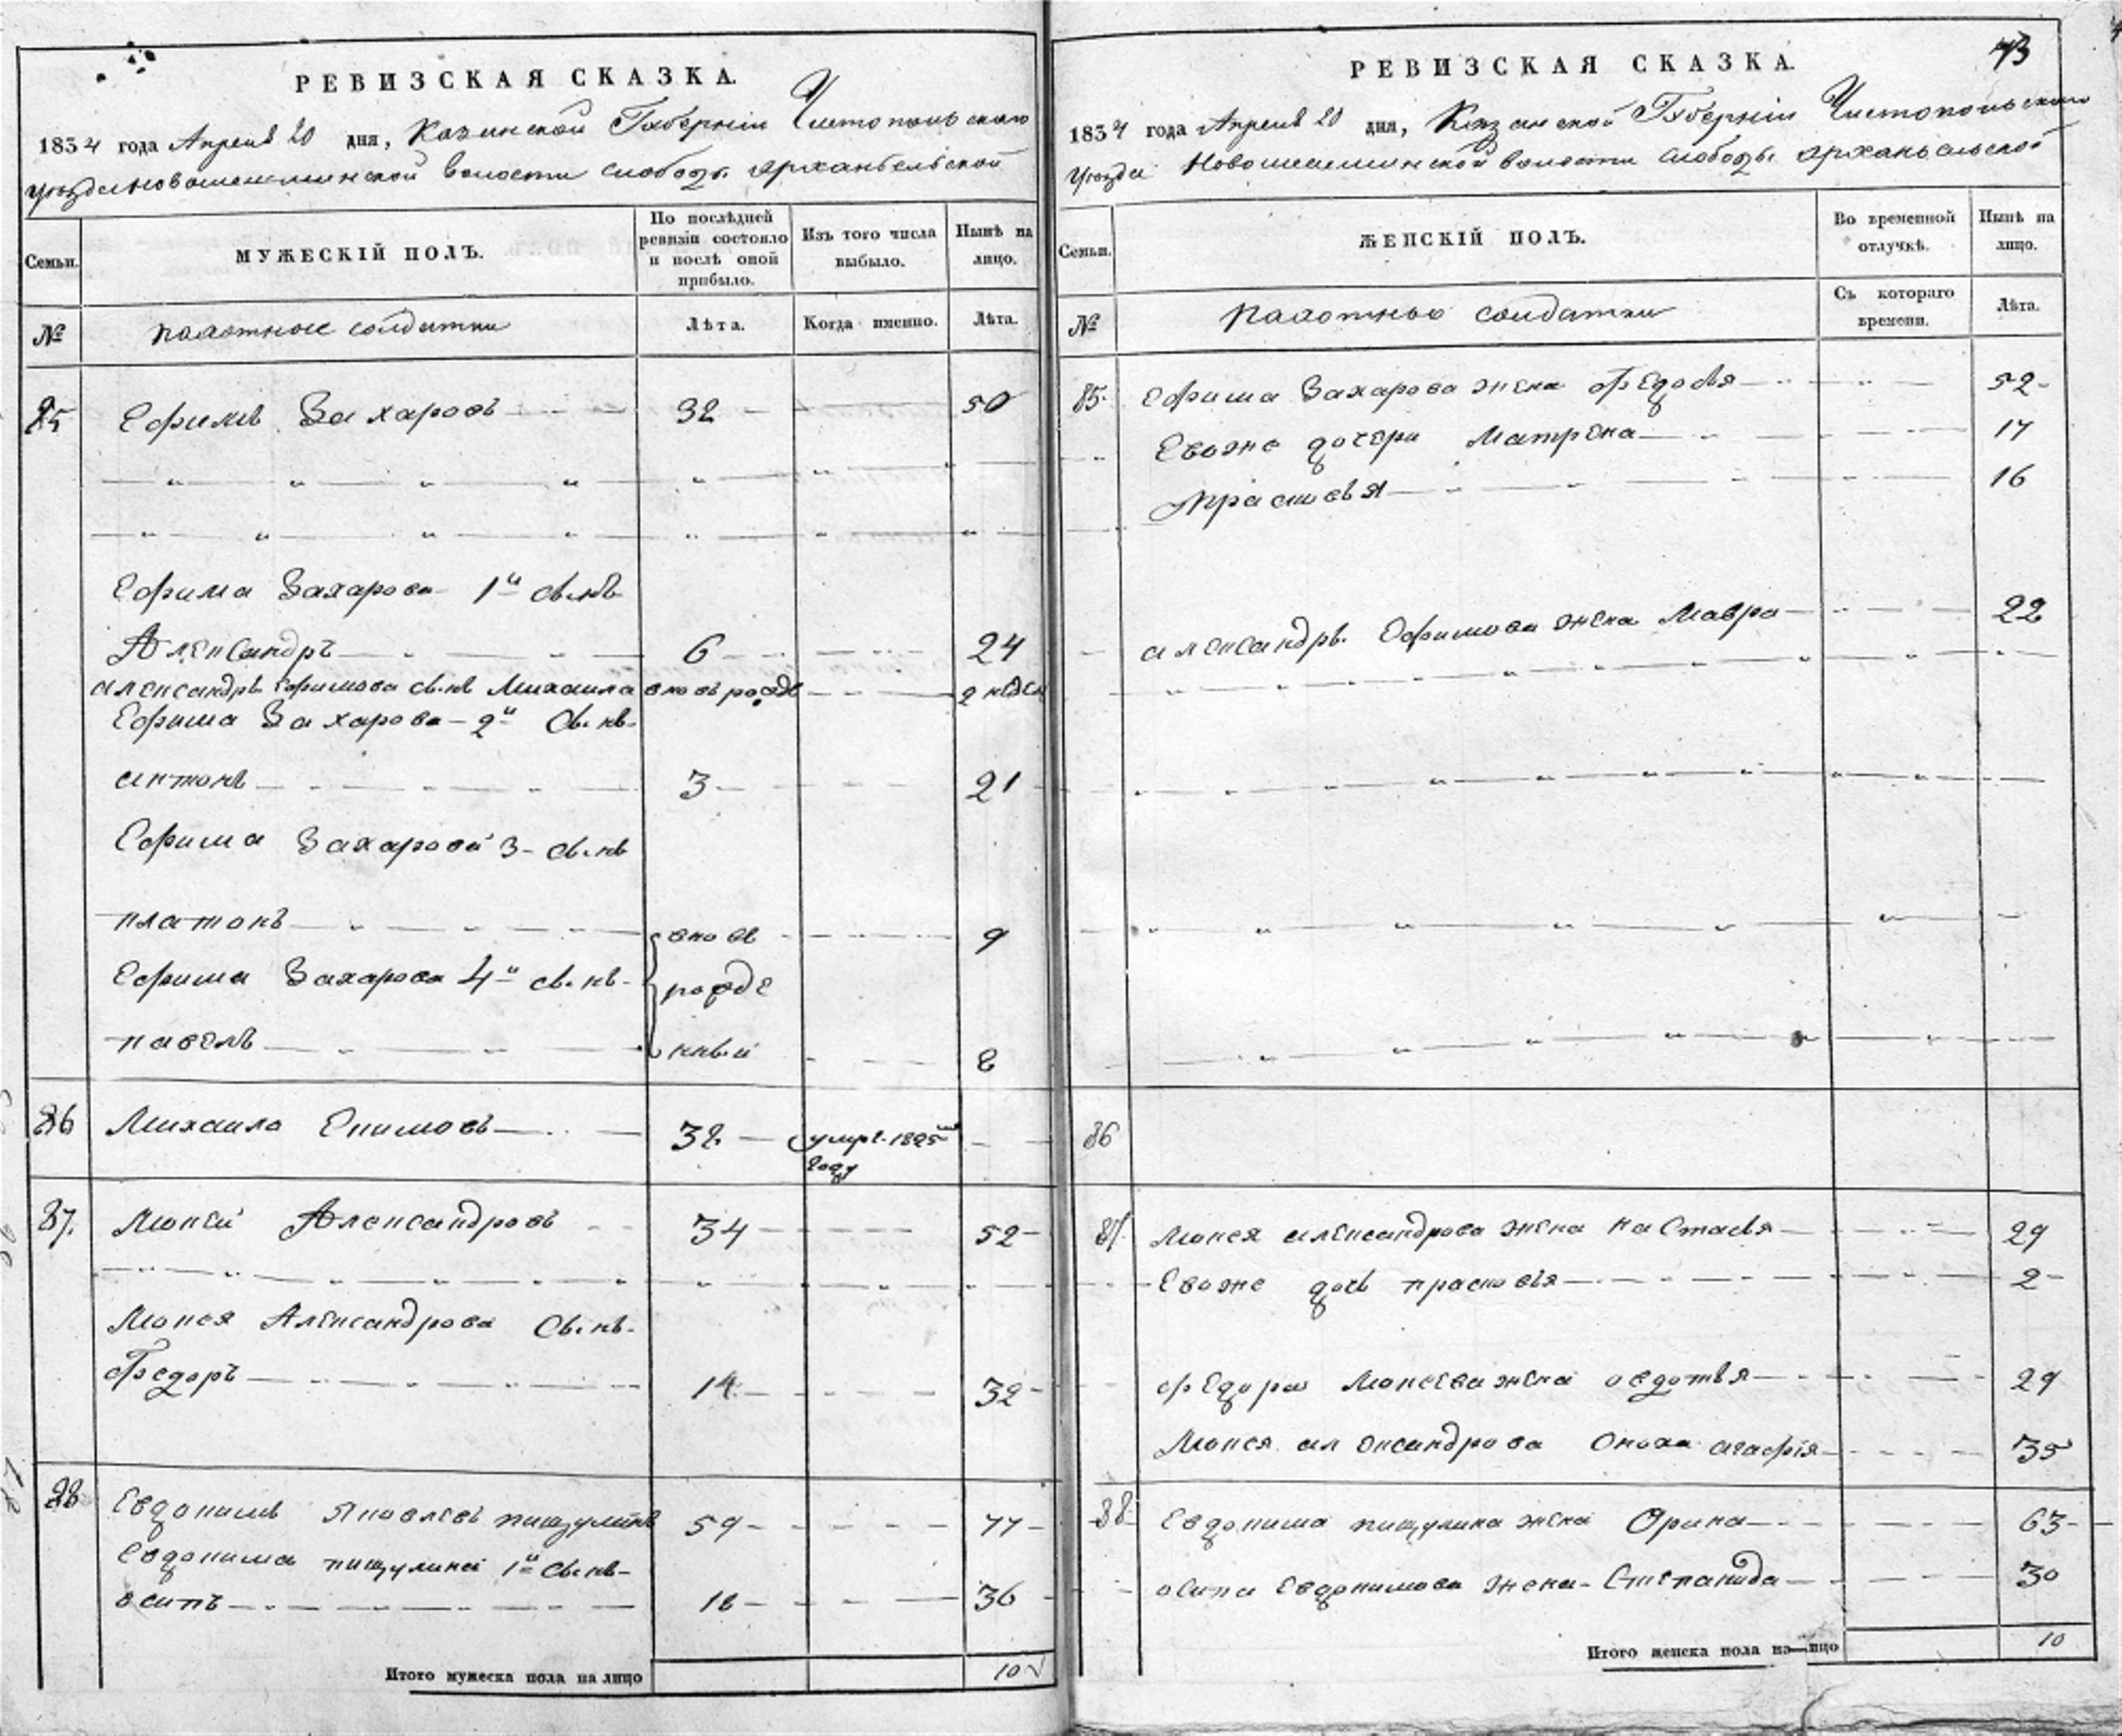 РЕВИЗСКАЯ СКАЗКА.
1834 года Апреля 20 дня, Казанской Губернiи Чистопольскаго
уезда Новошешминской волости слободы архангельской
Семьи.
МУЖЕСКIЙ ПОЛЪ.
По послѣдней ревизiи состояло и послѣ оной прибыло.
Изъ того числа выбыло.
Нынѣ на лицо.
№
пахотные солдатки
Лѣта.
Когда именно.
Лѣта.
85 Ефимъ Захаровъ 32 50
Ефима Захарова 1й сынъ
Александръ 6 24
александръ Ефимова сынъ Михаила вновь рожде 2 недел
Ефима Захарова 2й сынъ
антонъ 3 21
Ефима Захарова 3 сынъ
платонъ вновь 9
Ефима Захарова 4й сынъ рожде
павелъ нный 8
86 Михаила Екимовъ 32 умре 1825
году
87. Мокей Александровъ 34 52
Мокея Александрова сынъ
Федоръ 14 32
88 Евдокимъ Яковлевъ пищулинъ 59 77
Евдокима пищулина 1й сынъ
осипъ 18 36
Итого мужеска пола на лицо 10
73
РЕВИЗСКАЯ СКАЗКА.
1834 года Апреля 20 дня, Казанской Губернiи Чистопольскаго
Уезда Новошешминской волости слободы архангельской
Семьи.
ЖЕНСКIЙ ПОЛЪ.
Во временной отлучкѣ.
Нынѣ на лицо.
№
Пахотные солдатки
Съ котораго времени.
Лѣта.
85. Ефима Захарова жена Федосья 52
Евоже дочери Матрена 17
Прасковья 16
александръ Ефимова жена Мавра 22
86
87. Мокея александрова жена настасья 29
Евоже дочь прасковья 2
федора Мокеева жена овдотья 29
Мокея александрова сноха агафiя 35
88. Евдокима пищулина жена Орина 63
осипа Евдокимова жена Степанида 30
Итого женска пола на лицо 10